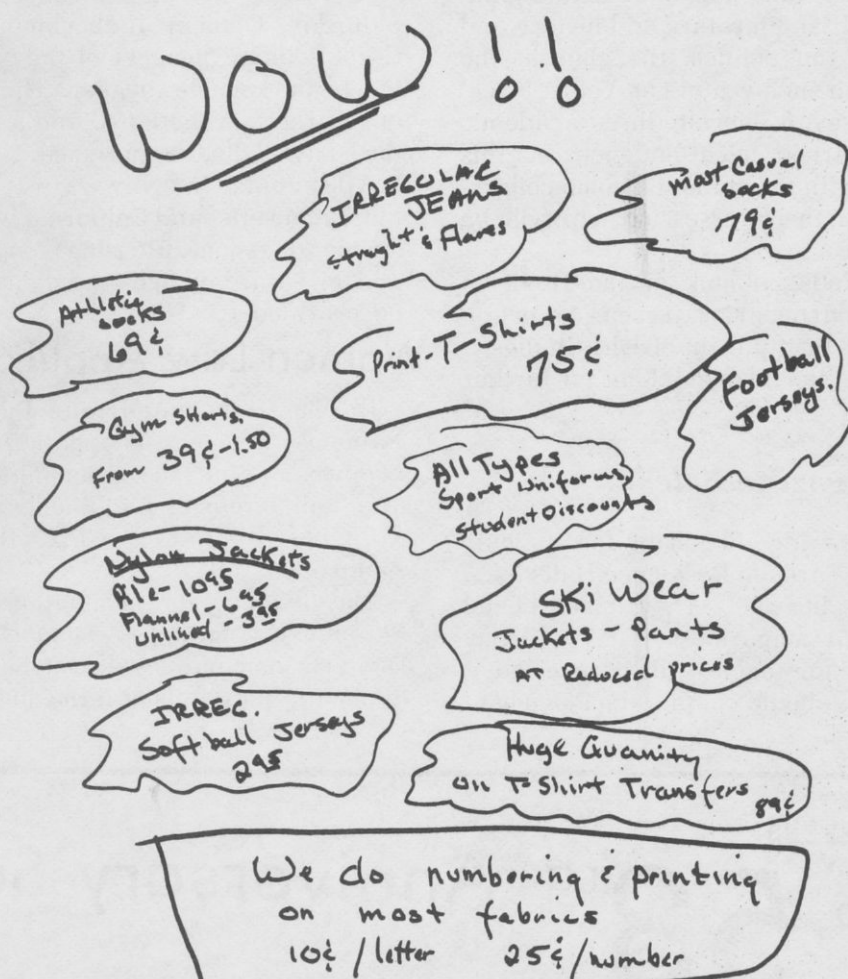 WOW !!
IRREGULAR
JEANS
straight & Flares
most Casual
socks
79¢
Athletic
socks
69¢
Print-T-Shirts
75¢
Football
Jerseys.
Gym Shorts.
From 39¢-1.50
All Types
Sport Uniforms,
Student Discounts
Nylon Jackets
Pile-1095
Flannel-695
Unlined-395
SKi Wear
Jackets-Pants
AT Reduced prices
IRREG.
Softball Jerseys
295
Huge Quanity
On T-Shirt Transfers
89¢
We do numbering & printing
on most fabrics
10¢/letter 25¢/number